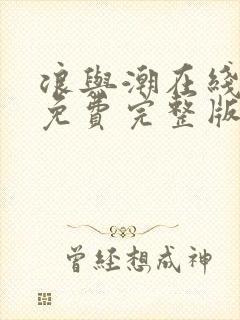 浪與潮在綫
免費完整版
曾經想成神